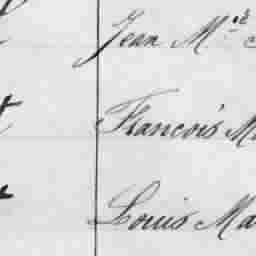 Jean M.ie
François M
Louis Ma